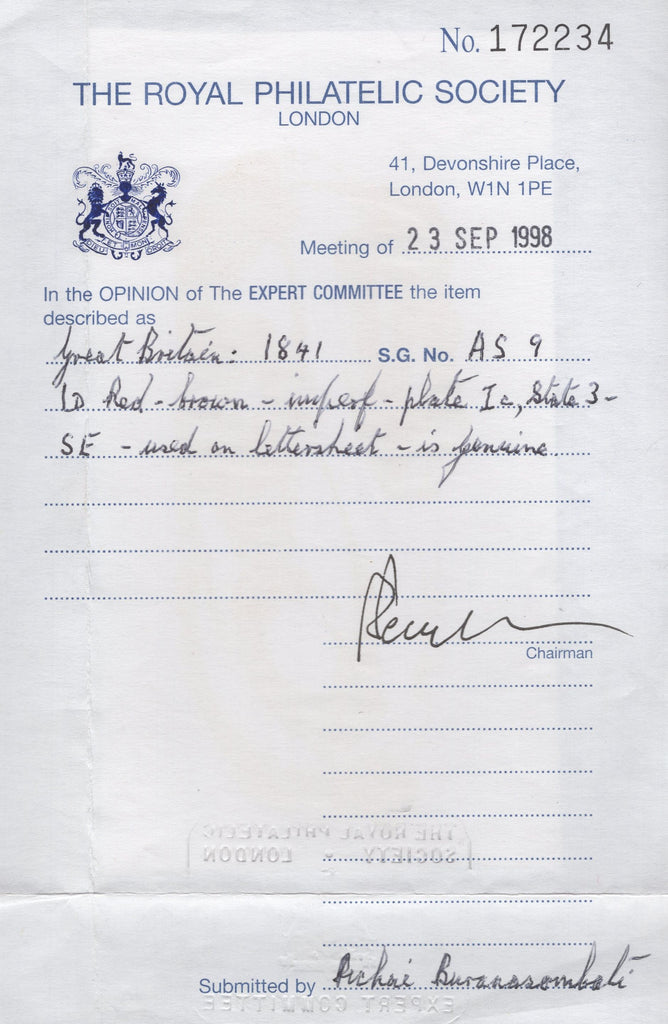 No. 172234
THE ROYAL PHILATELIC SOCIETY
LONDON
41, Devonshire Place,
London, W1N 1PE
Meeting of 23 SEP 1998
In the OPINION of The EXPERT COMMITTEE the item
described as
Great Britain: 1841 S.G. No. AS 9
1D Red - brown - imperf - plate 1c, State 3 -
SE - used on lettersheet - is genuine.
Chairman
THE ROYAL PHILATELIC
SOCIETY • LONDON
Submitted by Pichai Buranasombati
EXPERT COMMITTEE